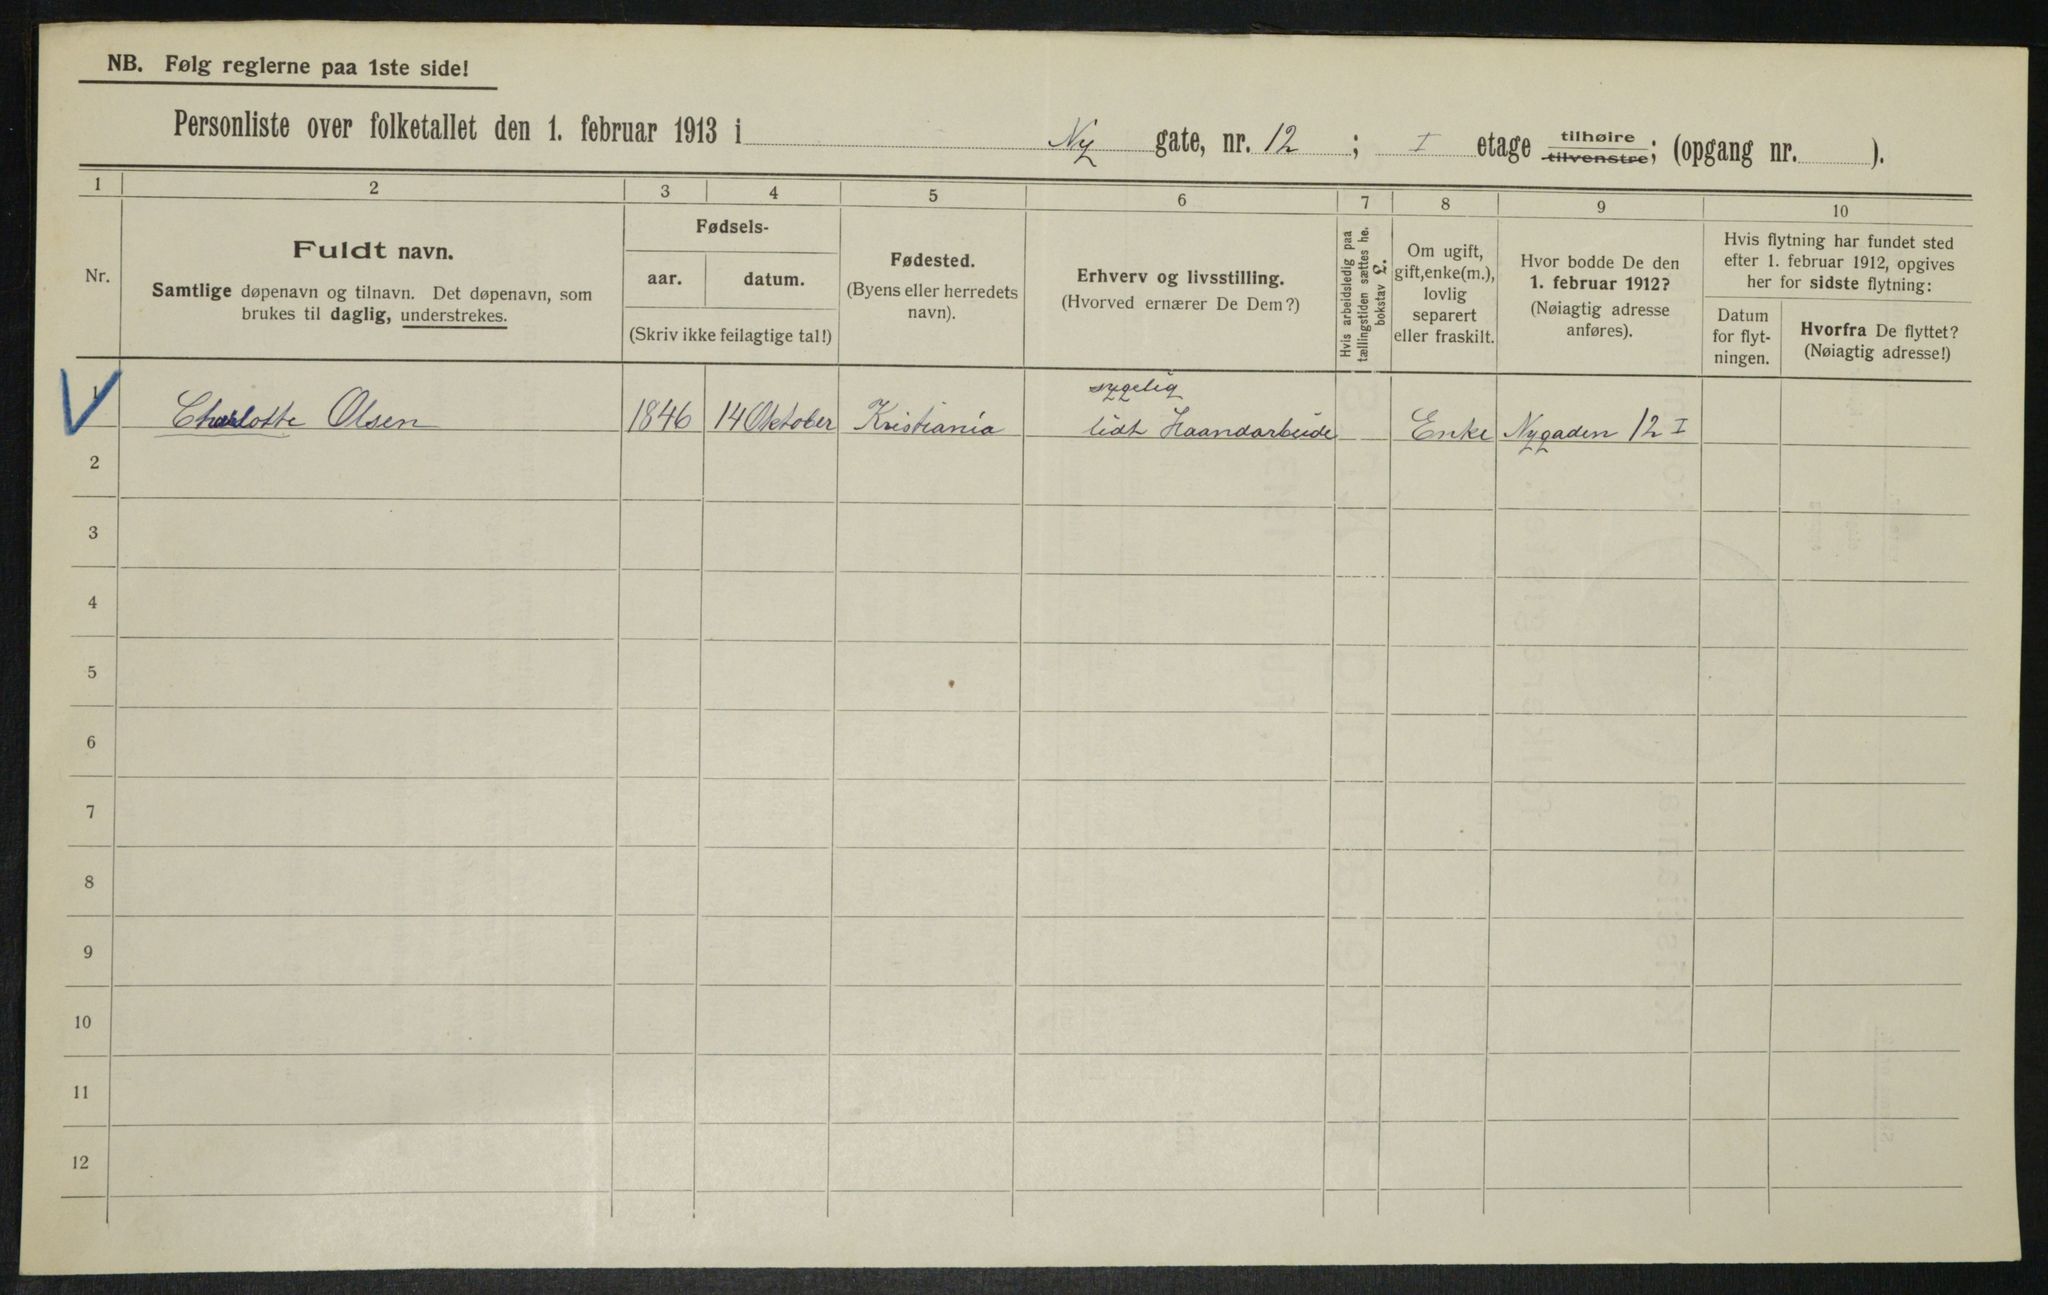 NB. Følg reglerne paa 1ste side!
Personliste over folketallet den 1. februar 1913 i Ny gate, nr. 12 ; I etage tilhøire tilvenstre; (opgang nr. ).
1 2 3 4 5 6 7 8 9 10
Nr.
Fuldt navn.
Samtlige døpenavn og tilnavn. Det døpenavn, som
brukes til daglig, understrekes.
Fødsels-
aar. datum.
(Skriv ikke feilagtige tal!)
Fødested.
(Byens eller herredets
navn).
Erhverv og livsstilling.
(Hvorved ernærer De Dem?)
Hvis arbeidsledig paa
tællingstiden sættes he.
bokstav £.
Om ugift,
gift, enke(m.),
lovlig
separert
eller fraskilt.
Hvor bodde De den
1. februar 1912?
(Nøiagtig adresse
anføres).
Hvis flytning har fundet sted
efter 1. februar 1912, opgives
her for sidste flytning:
Datum
for flyt-
ningen.
Hvorfra De flyttet?
(Nøiagtig adresse!)
sygelig
1 Charlotte Olsen 1846 14 Oktober Kristiania lidt Haandarbeide Enke Nygaden 12 I
2
3
4
5
6
7
8
9
10
11
12